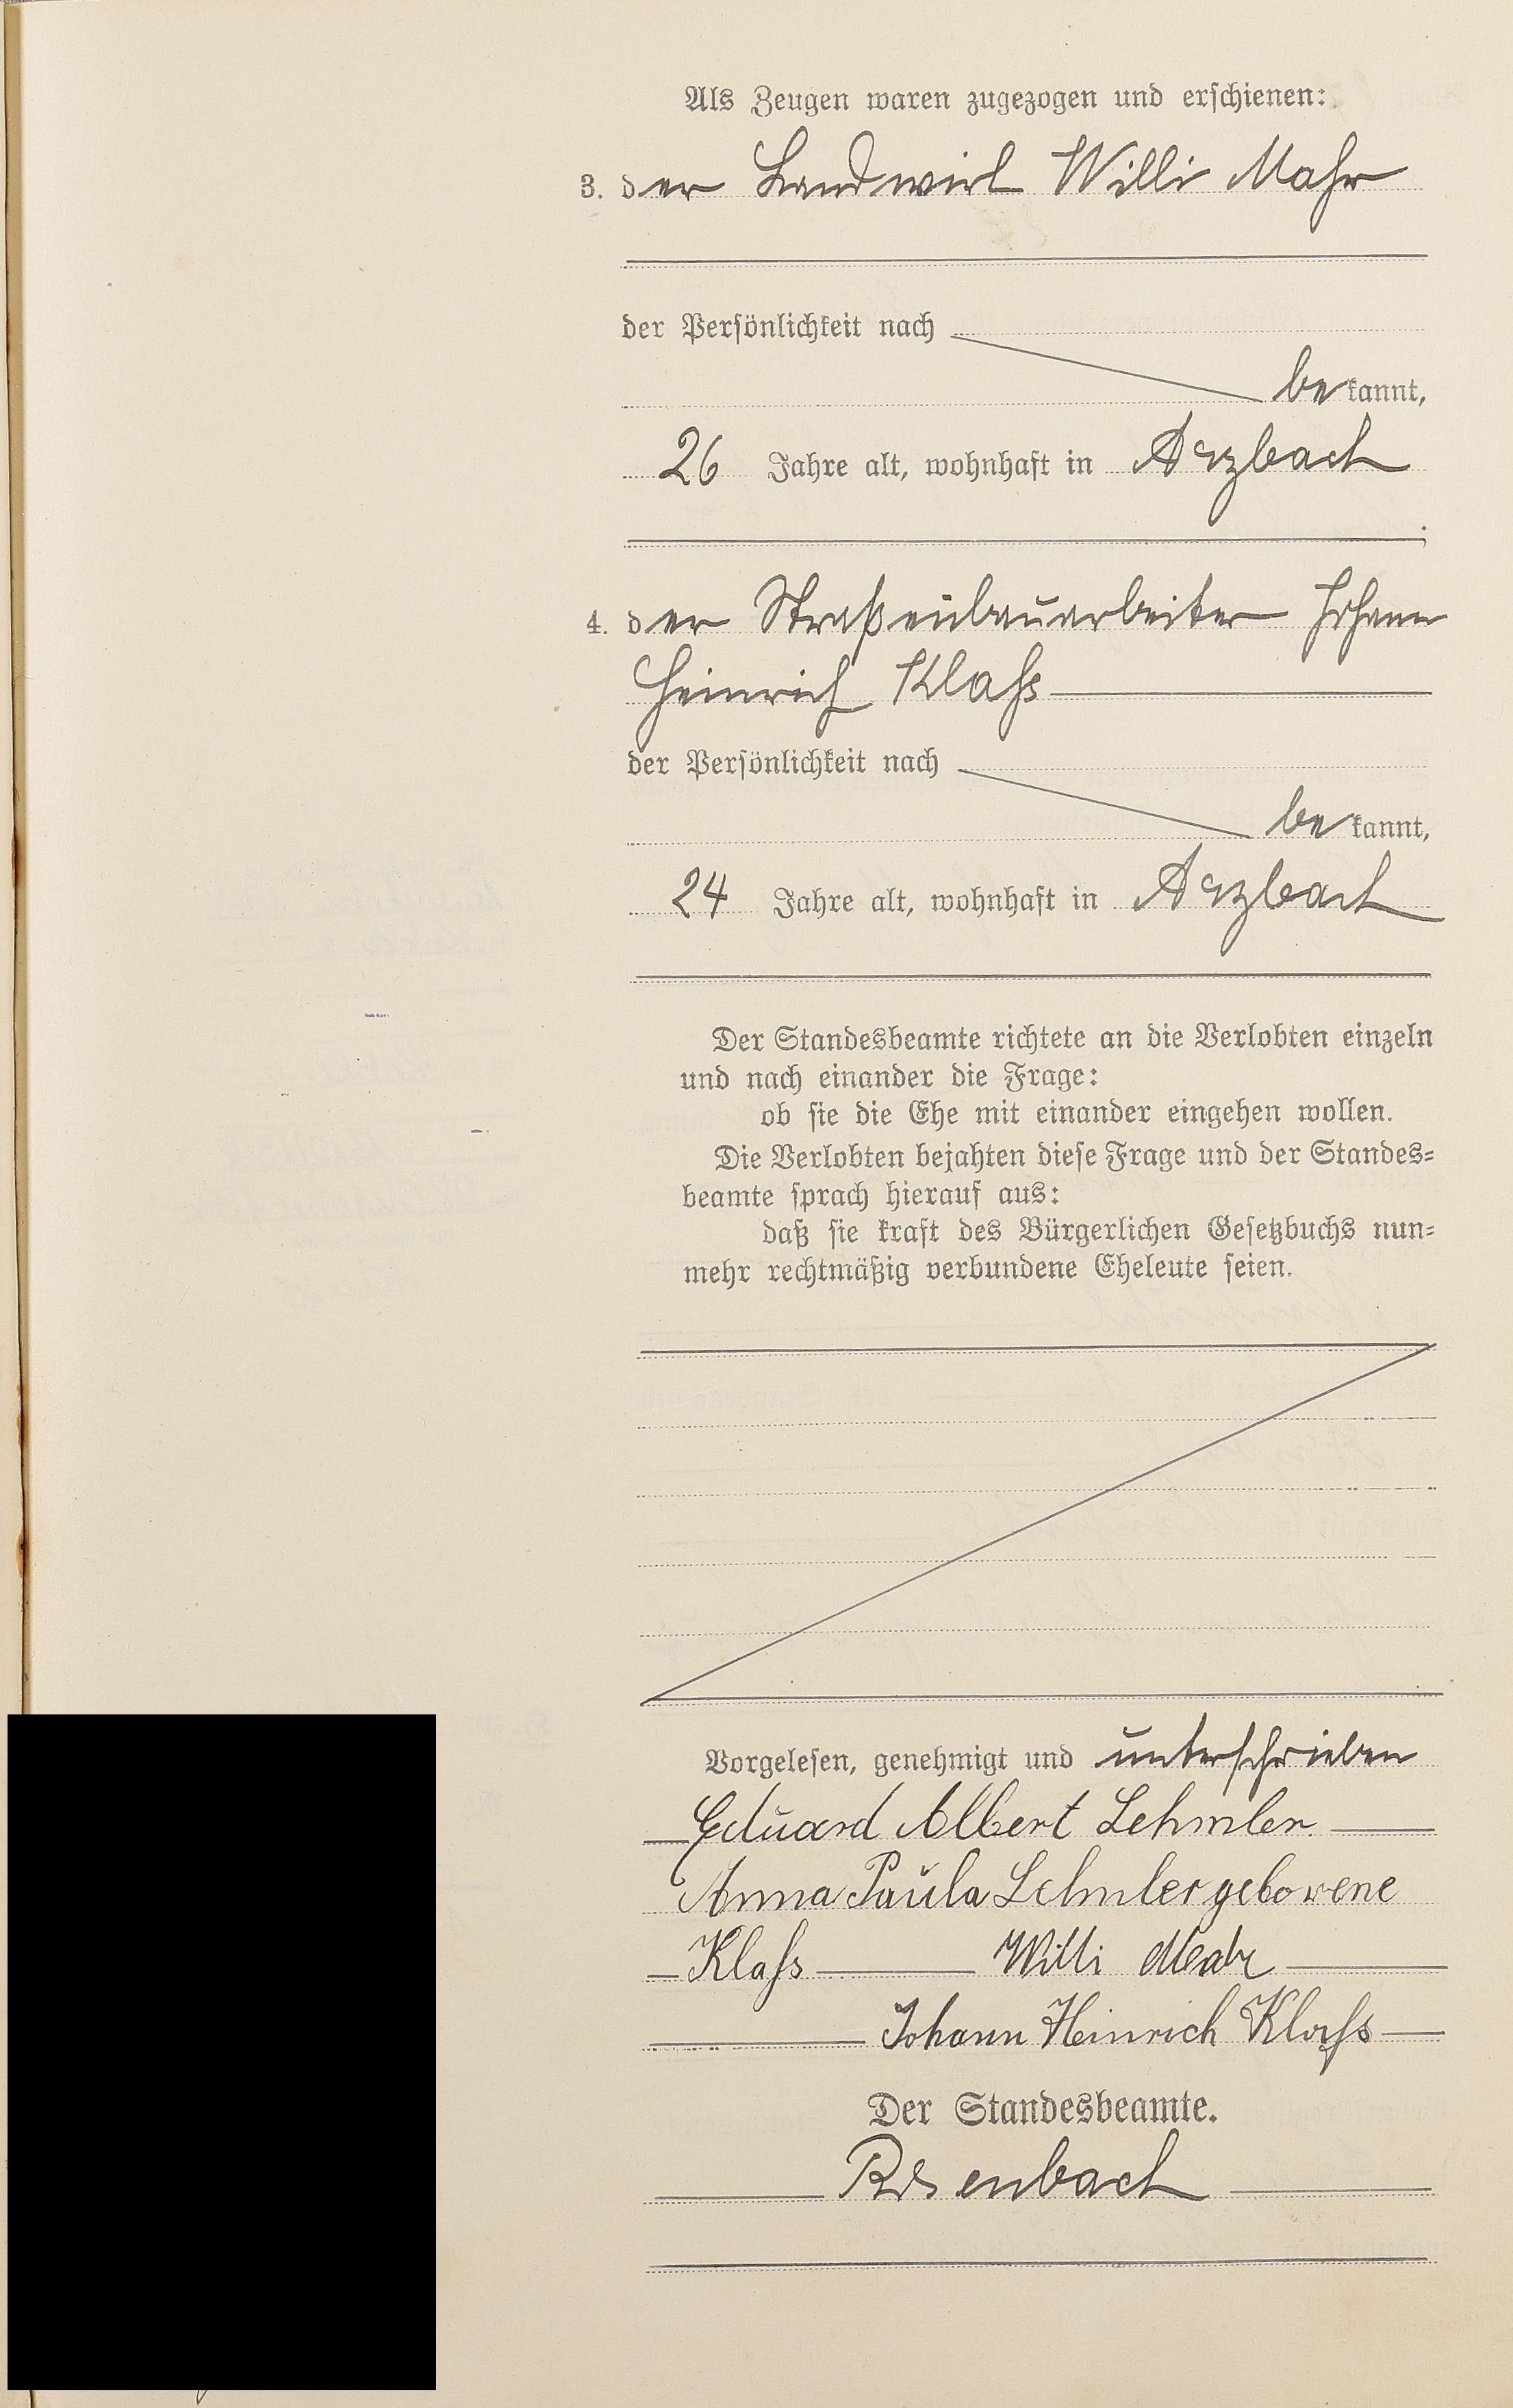 Als Zeugen waren zugezogen und erschienen:
3. der Landwirt Willi Mahr
der Persönlichkeit nach
bekannt,
26 Jahre alt, wohnhaft in Arzbach
4. der Straßenbauarbeiter Johann
Heinrich Klaſs
der Persönlichkeit nach
bekannt,
24 Jahre alt, wohnhaft in Arzbach
Der Standesbeamte richtete an die Verlobten einzeln
und nach einander die Frage:
ob sie die Ehe mit einander eingehen wollen.
Die Verlobten bejahten diese Frage und der Standes-
beamte sprach hierauf aus:
daß sie kraft des Bürgerlichen Gesetzbuchs nun-
mehr rechtmäßig verbundene Eheleute seien.
Vorgelesen, genehmigt und unterschrieben
Eduard Albert Lehmler
Anna Paula Lehmler geborene
Klaſs Willi Mahr
Johann Heinrich Klaſs
Der Standesbeamte.